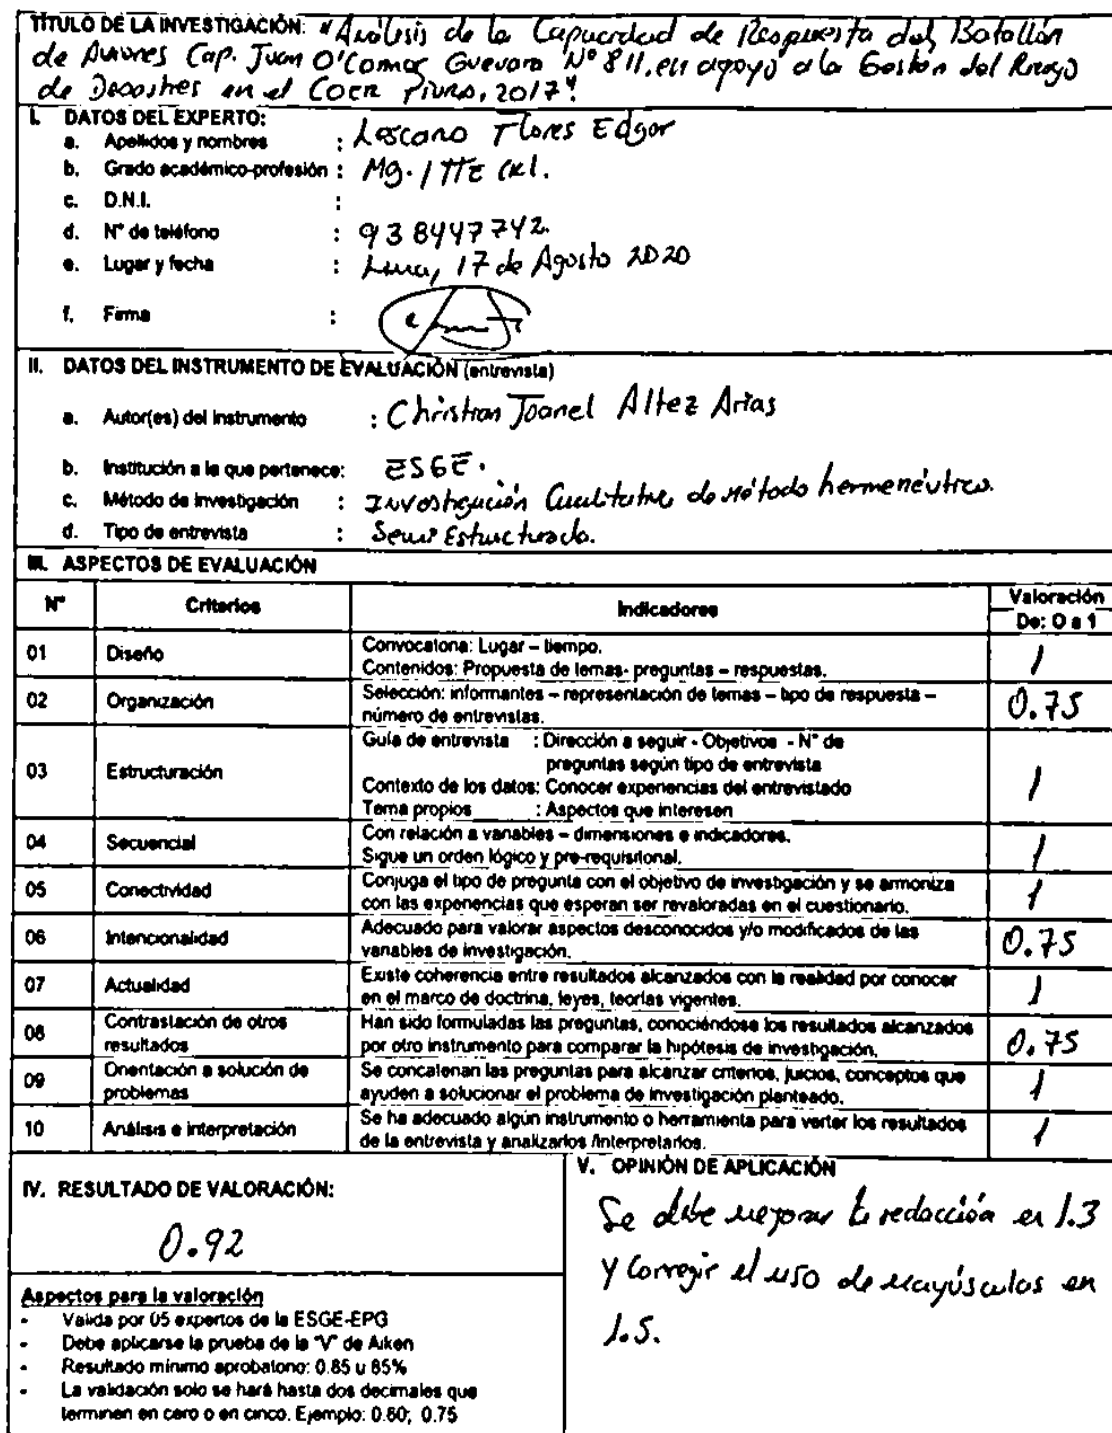 TÍTULO DE LA INVESTIGACIÓN: "Análisis de la Capacidad de Respuesta del Batallón
de Aviones Cap. Juan O'Connor Guevara N° 811, en apoyo a la Gestión del Riesgo
de Desastres en el COER Piura, 2017".
I. DATOS DEL EXPERTO:
a. Apellidos y nombres : Lescano Flores Edgar
b. Grado académico-profesión : Mg. / TTE CRL.
c. D.N.I. :
d. N° de teléfono : 938447742.
e. Lugar y fecha : Lima, 17 de Agosto 2020
f. Firma :
II. DATOS DEL INSTRUMENTO DE EVALUACIÓN (entrevista)
a. Autor(es) del instrumento : Christian Joanel Altez Arias
b. Institución a la que pertenece: ESGE.
c. Método de investigación : Investigación Cualitativa de método hermenéutico.
d. Tipo de entrevista : Semi Estructurada.
III. ASPECTOS DE EVALUACIÓN
N° Criterios Indicadores Valoración
De: 0 a 1
01 Diseño Convocatoria: Lugar – tiempo.
Contenidos: Propuesta de temas- preguntas – respuestas. 1
02 Organización Selección: informantes – representación de temas – tipo de respuesta –
número de entrevistas. 0.75
03 Estructuración Guía de entrevista : Dirección a seguir - Objetivos - N° de
preguntas según tipo de entrevista
Contexto de los datos: Conocer experiencias del entrevistado 1
Tema propios : Aspectos que interesen
04 Secuencial Con relación a variables – dimensiones e indicadores.
Sigue un orden lógico y pre-requisitional. 1
05 Conectividad Conjuga el tipo de pregunta con el objetivo de investigación y se armoniza
con las experiencias que esperan ser revaloradas en el cuestionario. 1
06 Intencionalidad Adecuado para valorar aspectos desconocidos y/o modificados de las
variables de investigación. 0.75
07 Actualidad Existe coherencia entre resultados alcanzados con la realidad por conocer
en el marco de doctrina, leyes, teorías vigentes. 1
08 Contrastación de otros
resultados Han sido formuladas las preguntas, conociéndose los resultados alcanzados
por otro instrumento para comparar la hipótesis de investigación. 0.75
09 Orientación a solución de
problemas Se concatenan las preguntas para alcanzar criterios, juicios, conceptos que
ayuden a solucionar el problema de investigación planteado. 1
10 Análisis e interpretación Se ha adecuado algún instrumento o herramienta para verter los resultados
de la entrevista y analizarlos /interpretarlos. 1
IV. RESULTADO DE VALORACIÓN:
0.92
Aspectos para la valoración
- Valida por 05 expertos de la ESGE-EPG
- Debe aplicarse la prueba de la "V" de Aiken
- Resultado mínimo aprobatorio: 0.85 u 85%
- La validación solo se hará hasta dos decimales que
terminen en cero o en cinco. Ejemplo: 0.60; 0.75
V. OPINIÓN DE APLICACIÓN
Se debe mejorar la redacción en 1.3
y corregir el uso de mayúsculas en
1.5.